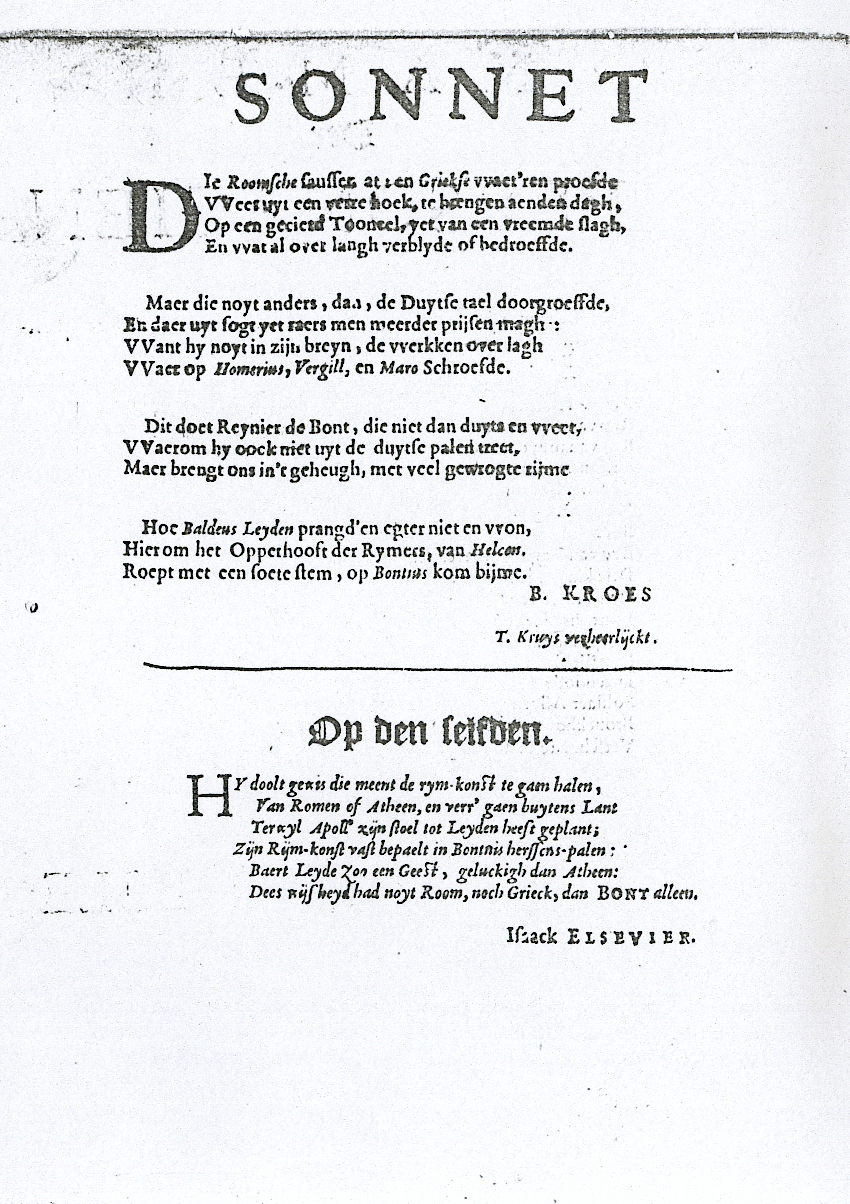 SONNET
DIe Roomsche sausser, at en Griekse vvaet'ren proefde
VVeet uyt een verre hoek, te brengen aenden dagh,
Op een geciert Tooneel, yet van een vreemde slagh,
En vvat al over langh verblyde of bedroeffde.
Maer die noyt anders, dan, de Duytse tael doorgroeffde,
En daer uyt sogt yet raers men meerder prijsen magh:
VVant hy noyt in zijn breyn, de vverkken over lagh
VVaer op Homerius, Vergill, en Maro Schroefde.
Dit doet Reynier de Bont, die niet dan duyts en vveet,
VVaerom hy oock niet uyt de duytse palen treet,
Maer brengt ons in't geheugh, met veel gewrogte rijme
Hoe Baldeus Leyden prangd' en egter niet en vvon,
Hierom het Opperhooft der Rymers, van Helcon.
Roept met een soete stem, op Bontius kom bijme.
B. KROES
T. Kruys verheerlijckt.
Op den selfden.
HY doolt gewis die meent de rym-konst te gaen halen,
Van Romen of Atheen, en verr' gaen buytens Lant
Terwyl Apoll' zijn stoel tot Leyden heeft geplant;
Zijn Rijm-konst vast bepaelt in Bontius herssens-palen:
Baert Leyde Zoo een Geest, geluckigh dan Atheen:
Dees wijsheyd had noyt Room, noch Grieck, dan BONT alleen.
Isaack ELSEVIER.